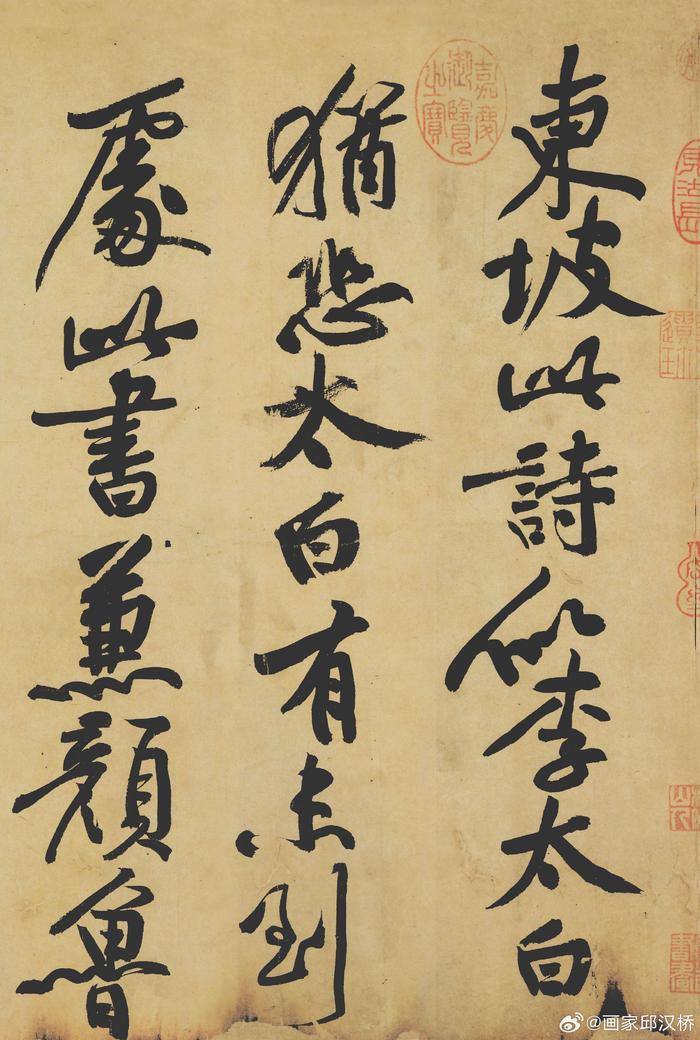 東坡此詩似李太白
猶恐太白有未到
處此書兼顏魯
嘉慶御覽之寶
@画家邱汉桥